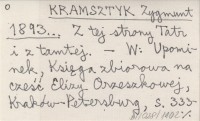 KRAMSZTYK Zygmunt
1893... Z tej strony Tatr
i z tamtej. — W: Upomi-
nek, Księga zbiorowa na
cześć Elizy Orzeszkowej,
Kraków-Petersburg, s. 333-